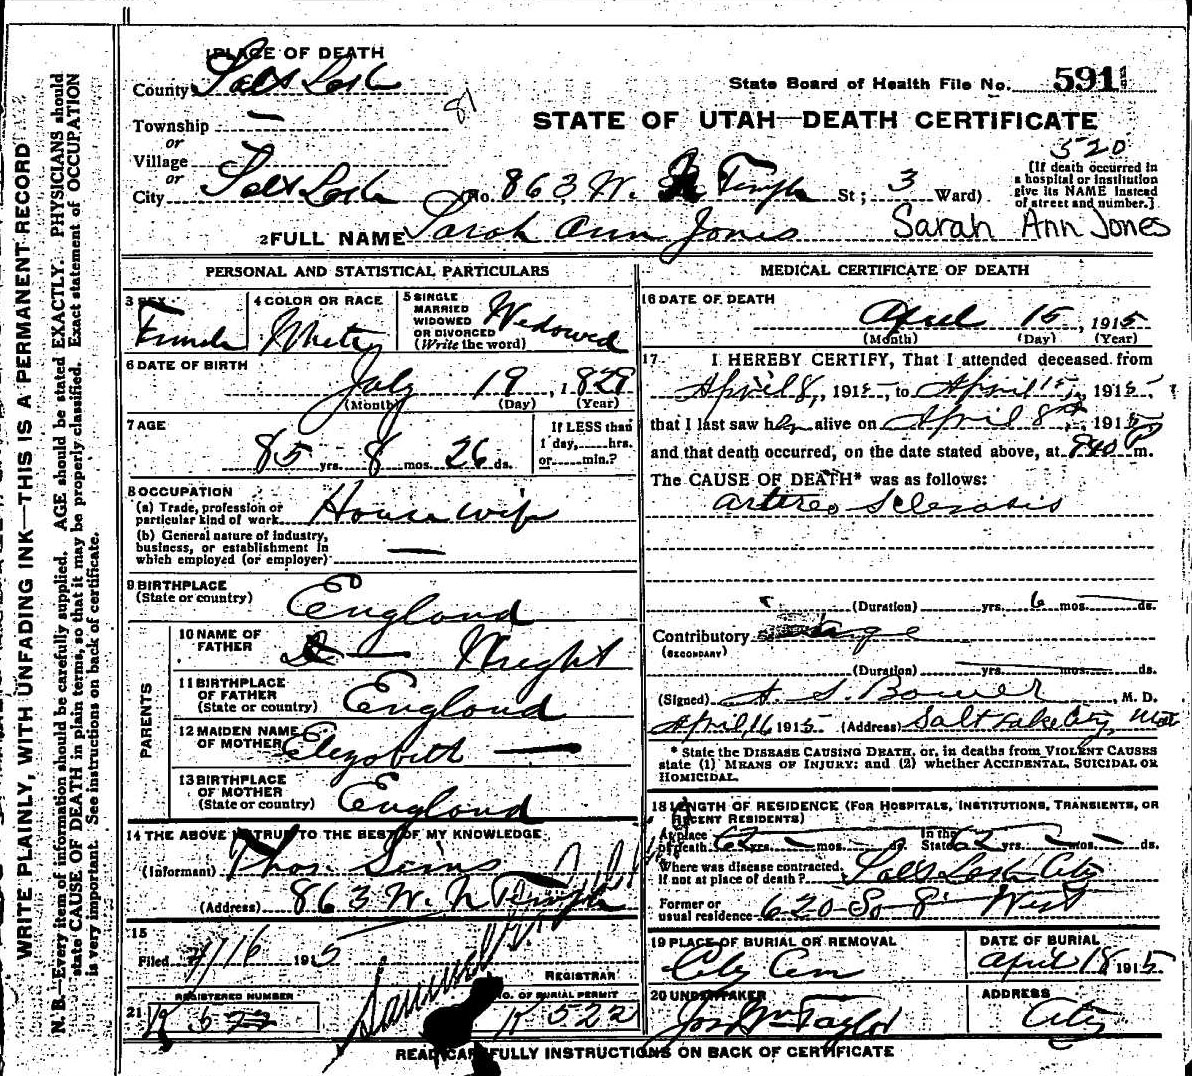 PLACE OF DEATH
County Salt Lake
State Board of Health File No. 591
81
Township —
or
STATE OF UTAH—DEATH CERTIFICATE
Village
or
520
City Salt Lake No. 863 W. N Temple St; 3 Ward)
[If death occurred in
a hospital or institution
give its NAME instead
of street and number.]
2 FULL NAME Sarah Ann Jones Sarah Ann Jones
PERSONAL AND STATISTICAL PARTICULARS
3 SEX
Female
4 COLOR OR RACE
White
5 SINGLE
MARRIED
WIDOWED
OR DIVORCED
(Write the word)
Widowed
6 DATE OF BIRTH
July 19, 1829
(Month) (Day) (Year)
7 AGE
85 yrs. 8 mos. 26 ds.
If LESS than
1 day,......hrs.
or......min.?
8 OCCUPATION
(a) Trade, profession or
particular kind of work House wife
(b) General nature of industry,
business, or establishment in
which employed (or employer) —
9 BIRTHPLACE
(State or country) England
PARENTS
10 NAME OF
FATHER — Wright
11 BIRTHPLACE
OF FATHER
(State or country) England
12 MAIDEN NAME
OF MOTHER Elezabeth —
13 BIRTHPLACE
OF MOTHER
(State or country) England
14 THE ABOVE IS TRUE TO THE BEST OF MY KNOWLEDGE
(Informant) Thos. Sims
(Address) 863 W. N Temple
15
Filed 4/16 1915
Samuel
REGISTRAR
REGISTERED NUMBER
21 K 522
NO. OF BURIAL PERMIT
K 522
MEDICAL CERTIFICATE OF DEATH
16 DATE OF DEATH
April 15, 1915
(Month) (Day) (Year)
17 I HEREBY CERTIFY, That I attended deceased from
April 8, 1915, to April 15, 1915,
that I last saw her alive on April 8th, 1915
and that death occurred, on the date stated above, at 840 P m.
The CAUSE OF DEATH* was as follows:
arterio Sclerosis
(Duration) yrs. 6 mos. ds.
Contributory age
(SECONDARY)
(Duration) yrs. mos. ds.
(Signed) A. S. Bower, M. D.
April, 16 1915 (Address) Salt Lake City, Utah
* State the DISEASE CAUSING DEATH, or, in deaths from VIOLENT CAUSES
state (1) MEANS OF INJURY; and (2) whether ACCIDENTAL, SUICIDAL OR
HOMICIDAL.
18 LENGTH OF RESIDENCE (FOR HOSPITALS, INSTITUTIONS, TRANSIENTS, OR
RECENT RESIDENTS)
At place
of death 62 yrs. — mos. — ds. In the
State 62 yrs. — mos. — ds.
Where was disease contracted,
If not at place of death? Salt Lake City
Former or
usual residence 620 So 8 West
19 PLACE OF BURIAL OR REMOVAL
City Cem
DATE OF BURIAL
April 18 1915
20 UNDERTAKER
Jos Wm Taylor
ADDRESS
City
READ CAREFULLY INSTRUCTIONS ON BACK OF CERTIFICATE
WRITE PLAINLY, WITH UNFADING INK—THIS IS A PERMANENT RECORD
N. B.—Every item of information should be carefully supplied. AGE should be stated EXACTLY. PHYSICIANS should
state CAUSE OF DEATH in plain terms, so that it may be properly classified. Exact statement of OCCUPATION
is very important. See instructions on back of certificate.